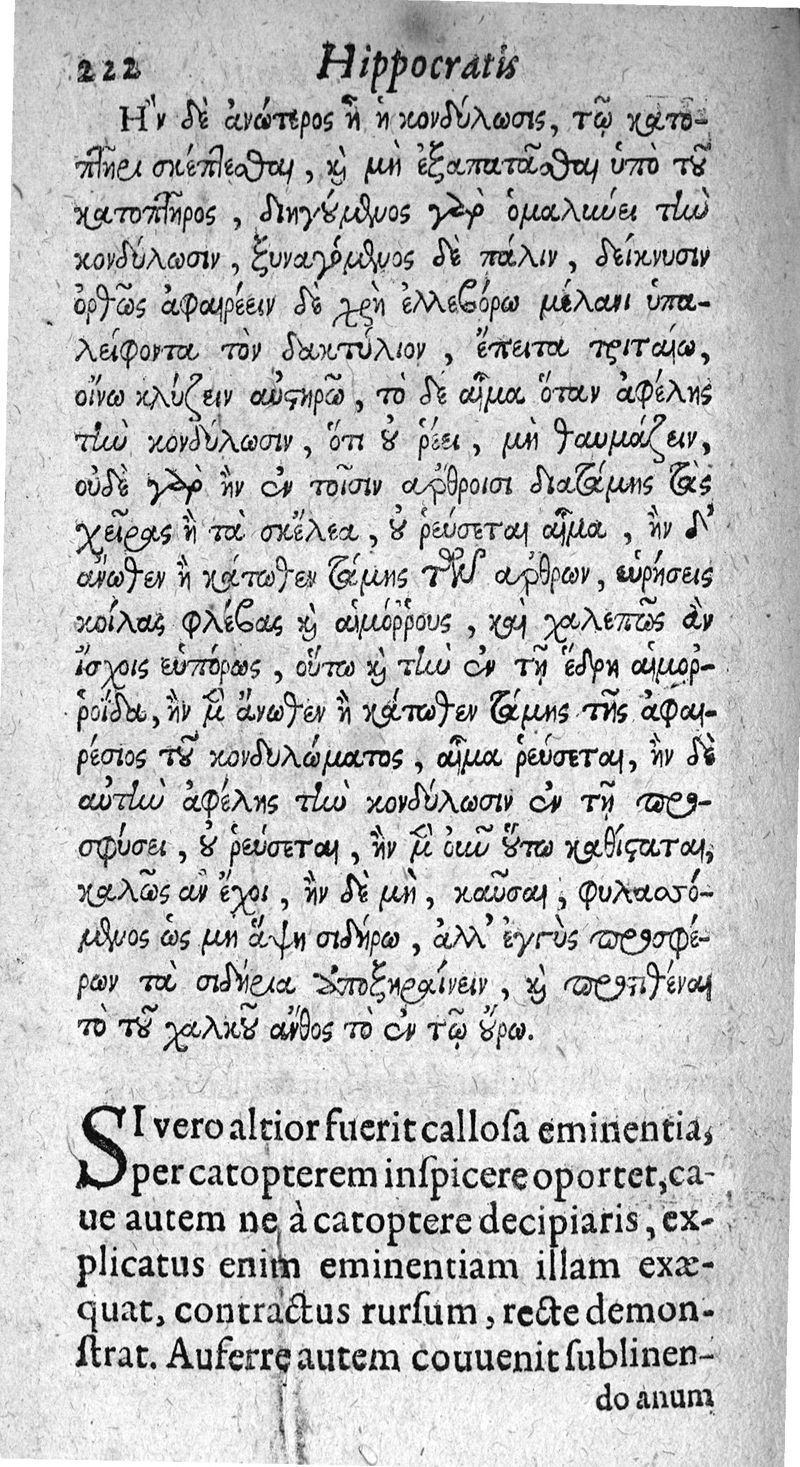 222 Hippocratis
Ην δὲ ἀνώτερος ἦ ἡ κονδύλωσις, τῷ κατο-
πτῆρι σκέπτεσθαι, καὶ μὴ ἐξαπατᾶσθαι ὑπὸ τοῦ
κατοπτῆρος, διηγούμενος γὰρ ὁμαλιύει τὴν
κονδύλωσιν, ξυναγόμενος δὲ πάλιν, δείκνυσιν
ὀρθῶς ἀφαιρέειν δὲ χρὴ ἐλλεβόρω μέλανι ὑπα-
λείφοντα τὸν δακτύλιον, ἔπειτα τριταίω,
οἴνω κλύζειν αὐστηρῷ, τὸ δε αἷμα ὅταν ἀφέλης
τὴν κονδύλωσιν, ὅτι οὐ ῥέει, μὴ θαυμάζειν,
οὐδὲ γὰρ ἢν ἐν τοῖσιν αρθροισι διατάμης τὰς
χεῖρας ἢ τὰ σκέλεα, οὐ ῥεύσεται αἷμα, ἢν δ'
ἄνωθεν ἢ κάτωθεν τάμης τῶν αρθρων, εὑρήσεις
κοίλας φλέβας καὶ αἱμόῤῥους, καὶ χαλεπῶς ἂν
ἴσχοις εὐπόρως, οὕτω καὶ τὴν ἐν τῇ ἕδρη αἱμορ-
ροίδα, ἢν μὲν ἄνωθεν ἢ κάτωθεν τάμης τῆς ἀφαι-
ρέσιος τοῦ κονδυλώματος, αἷμα ῥεύσεται, ἢν δὲ
αὐτὴν ἀφέλης τὴν κονδύλωσιν ἐν τῇ προσ-
σφύσει, οὐ ῥεύσεται, ἢν μὲν οὖν οὕτω καθίσταται,
καλῶς αν ἔχοι, ἢν δὲ μὴ, καῦσαι, φυλασσό-
μενος ὡς μη ἅψη σιδήρω, ἀλλ' ἐγγὺς προσφέ-
ρων τὰ σιδήρια ἀποξηραίνειν, καὶ προστιθέναι
τὸ τοῦ χαλκοῦ ἄνθος τὸ ἐν τῷ οὔρω.
SI vero altior fuerit callosa eminentia,
per catopterem inspicere oportet, ca-
ue autem ne à catoptere decipiaris, ex-
plicatus enim eminentiam illam exæ-
quat, contractus rursum, recte demon-
strat. Auferre autem couuenit sublinen-
do anum